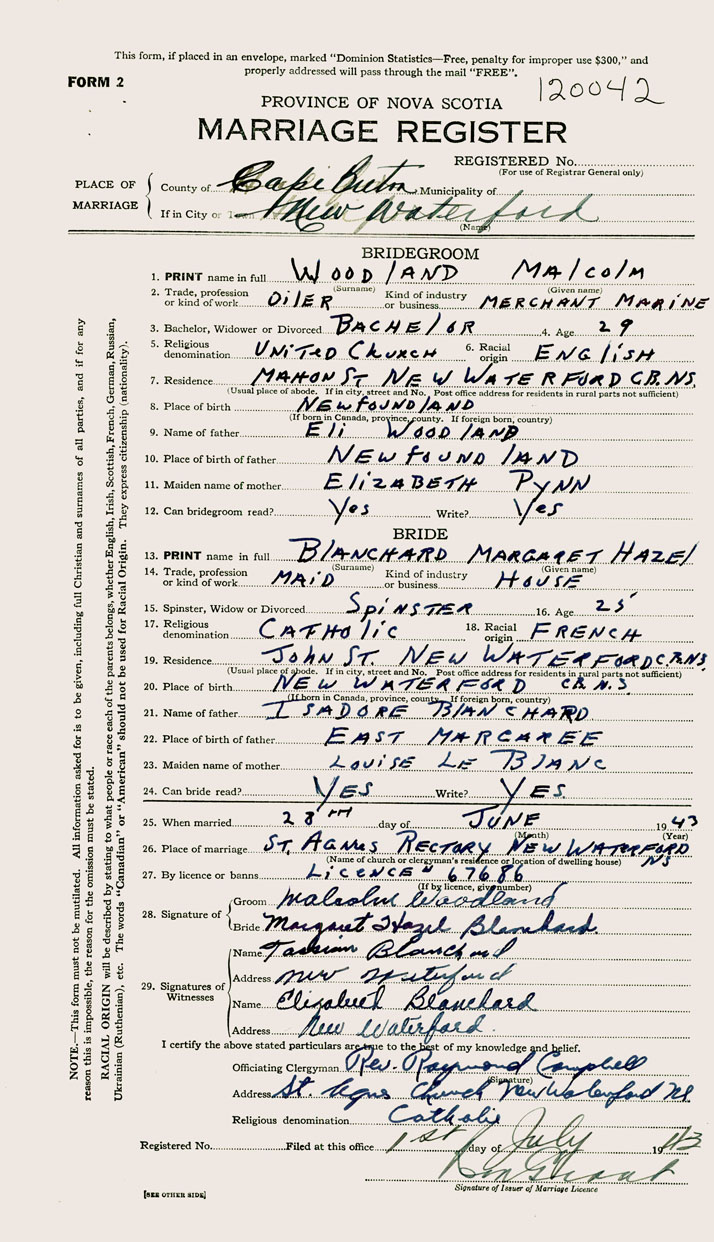 This form, if placed in an envelope, marked "Dominion Statistics—Free, penalty for improper use $300," and
properly addressed will pass through the mail "FREE".
FORM 2
120042
PROVINCE OF NOVA SCOTIA
MARRIAGE REGISTER
REGISTERED No.
(For use of Registrar General only)
PLACE OF MARRIAGE
County of Cape Breton Municipality of
If in City or Town New Waterford
(Name)
BRIDEGROOM
1. PRINT name in full WOODlAND MAlcolm
(Surname) (Given name)
2. Trade, profession or kind of work OilER Kind of industry or business MERCHANT MARINE
3. Bachelor, Widower or Divorced BACHElOR 4. Age 29
5. Religious denomination UNITED CHURCH 6. Racial origin ENGlISH
7. Residence MAHON ST NEW WATERFORD C.B. N.S.
(Usual place of abode. If in city, street and No. Post office address for residents in rural parts not sufficient)
8. Place of birth NEWFOUNDlAND
(If born in Canada, province, county. If foreign born, country)
9. Name of father Eli WOODlAND
10. Place of birth of father NEWFOUNDlAND
11. Maiden name of mother ElizABETH PYNN
12. Can bridegroom read? Yes Write? Yes
BRIDE
13. PRINT name in full BlANCHARD MARGARET HAZEl
(Surname) (Given name)
14. Trade, profession or kind of work MAiD Kind of industry or business HOUSE
15. Spinster, Widow or Divorced SpiNSTER 16. Age 25
17. Religious denomination CATHOlic 18. Racial origin FRENCH
19. Residence JOHN ST. NEW WATERFORD C.B. N.S.
(Usual place of abode. If in city, street and No. Post office address for residents in rural parts not sufficient)
20. Place of birth NEW WATERFORD C.B. N.S.
(If born in Canada, province, county. If foreign born, country)
21. Name of father ISADORE BlANCHARD
22. Place of birth of father EAST MARGAREE
23. Maiden name of mother LOUiSE LE BlANC
24. Can bride read? YES Write? YES
25. When married 28TH day of JUNE 1943
(Month) (Year)
26. Place of marriage ST. AGNES RECTORY NEW WATERFORD NS
(Name of church or clergyman's residence or location of dwelling house)
27. By licence or banns LICENCE " 67686
(If by licence, give number)
28. Signature of Groom Malcolm Woodland
Bride Margaret Hazel Blanchard.
29. Signatures of Witnesses
Name Blanchard
Address New Waterford
Name Elizabeth Blanchard
Address New Waterford.
I certify the above stated particulars are true to the best of my knowledge and belief.
Officiating Clergyman Rev. Raymond Campbell
(Signature)
Address St. Agnes Church New Waterford NS
Religious denomination Catholic
Registered No. Filed at this office 1st day of July 1943
Signature of Issuer of Marriage Licence
[SEE OTHER SIDE]
NOTE.—This form must not be mutilated. All information asked for is to be given, including full Christian and surnames of all parties, and if for any
reason this is impossible, the reason for the omission must be stated.
RACIAL ORIGIN will be described by stating to what people or race each of the parents belongs, whether English, Irish, Scottish, French, German, Russian,
Ukrainian (Ruthenian), etc. The words "Canadian" or "American" should not be used for Racial Origin. They express citizenship (nationality).